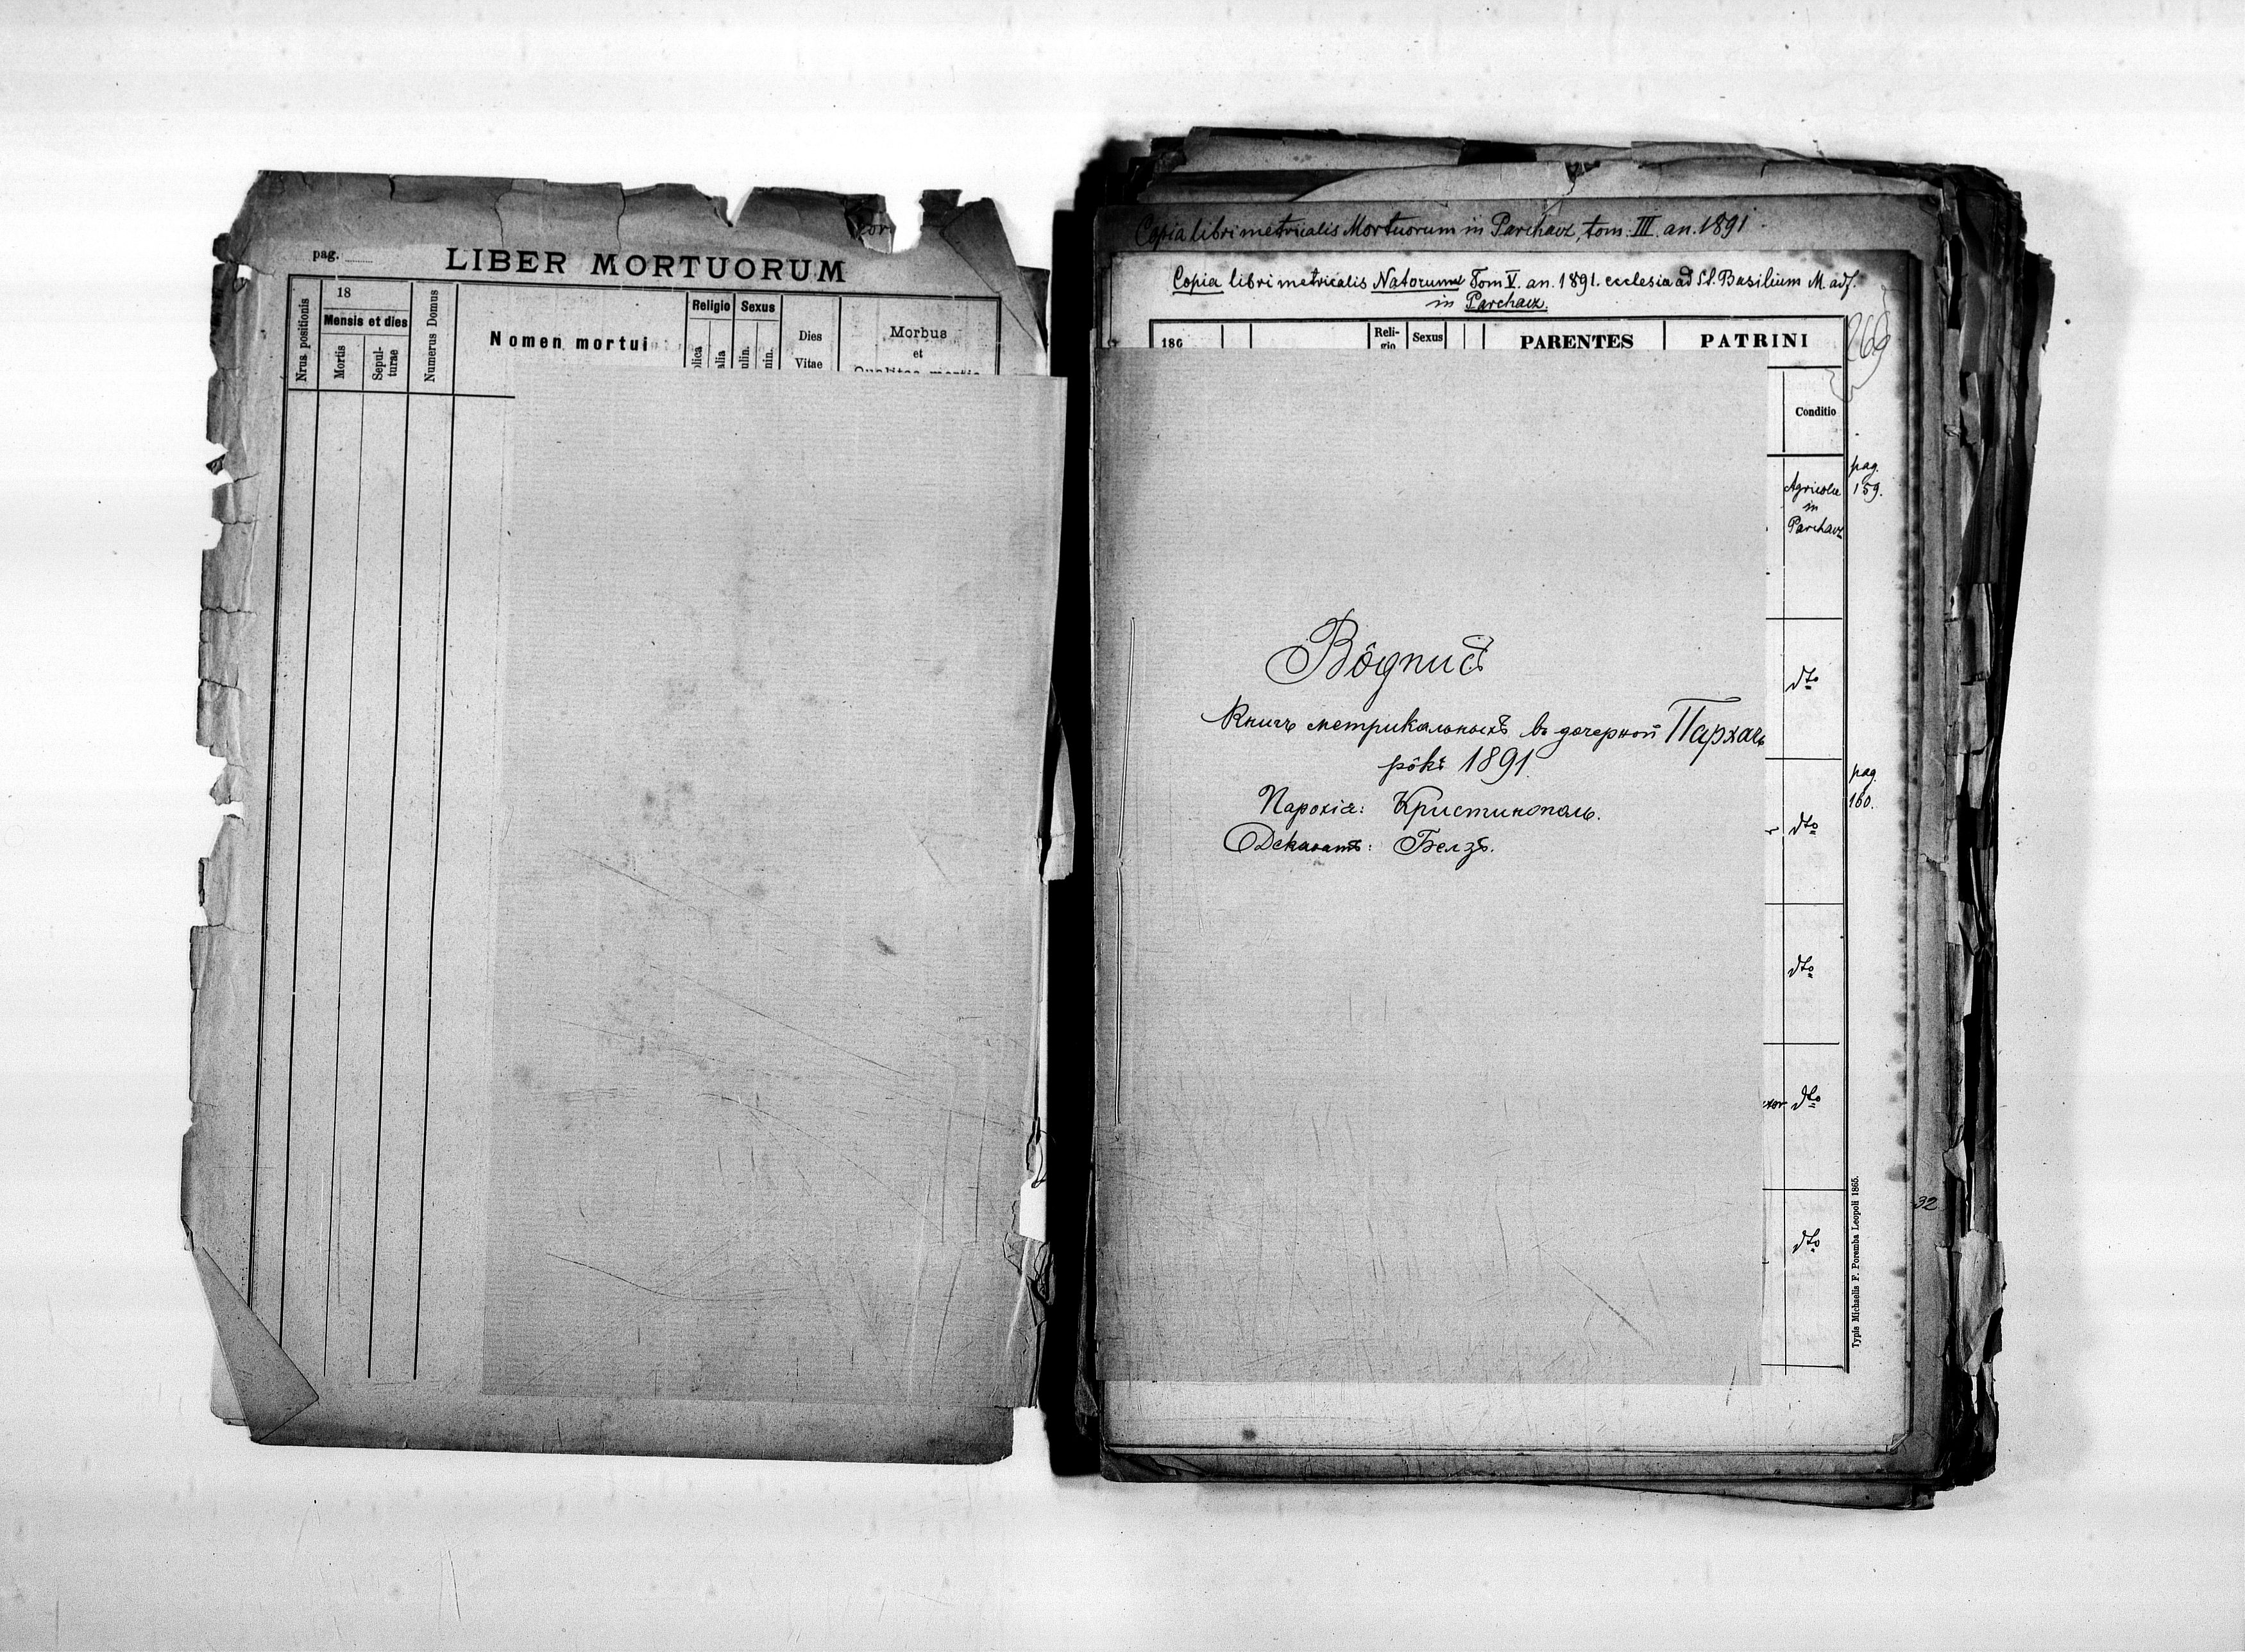 pag.
LIBER MORTUORUM
Nrus positionis
18
Mensis et dies
Mortis
Sepul-
turae
Numerus Domus
Nomen mortui
Religio
Sexus
Dies
Vitae
Morbus
et
Copia libri metricalis Mortuorum in Parchacz, tom. III. an. 1891
Copia libri metricalis Natorum Tom V. an. 1891. ecclesia ad SS. Basilium M. adf.
in Parchacz.
186
Reli-
gio
Sexus
PARENTES
PATRINI
269
Conditio
pag.
159.
Agricolae
in
Parchacz
Вôдписъ
Книгъ метрикальныхъ въ дочерной Пархачь
рôкъ 1891.
Парохіа: Кристинополь.
Деканатъ: Белзъ.
dto
pag.
160.
dto
dto
dto
dto
32
Typis Michaelis F. Poremba Leopoli 1865.